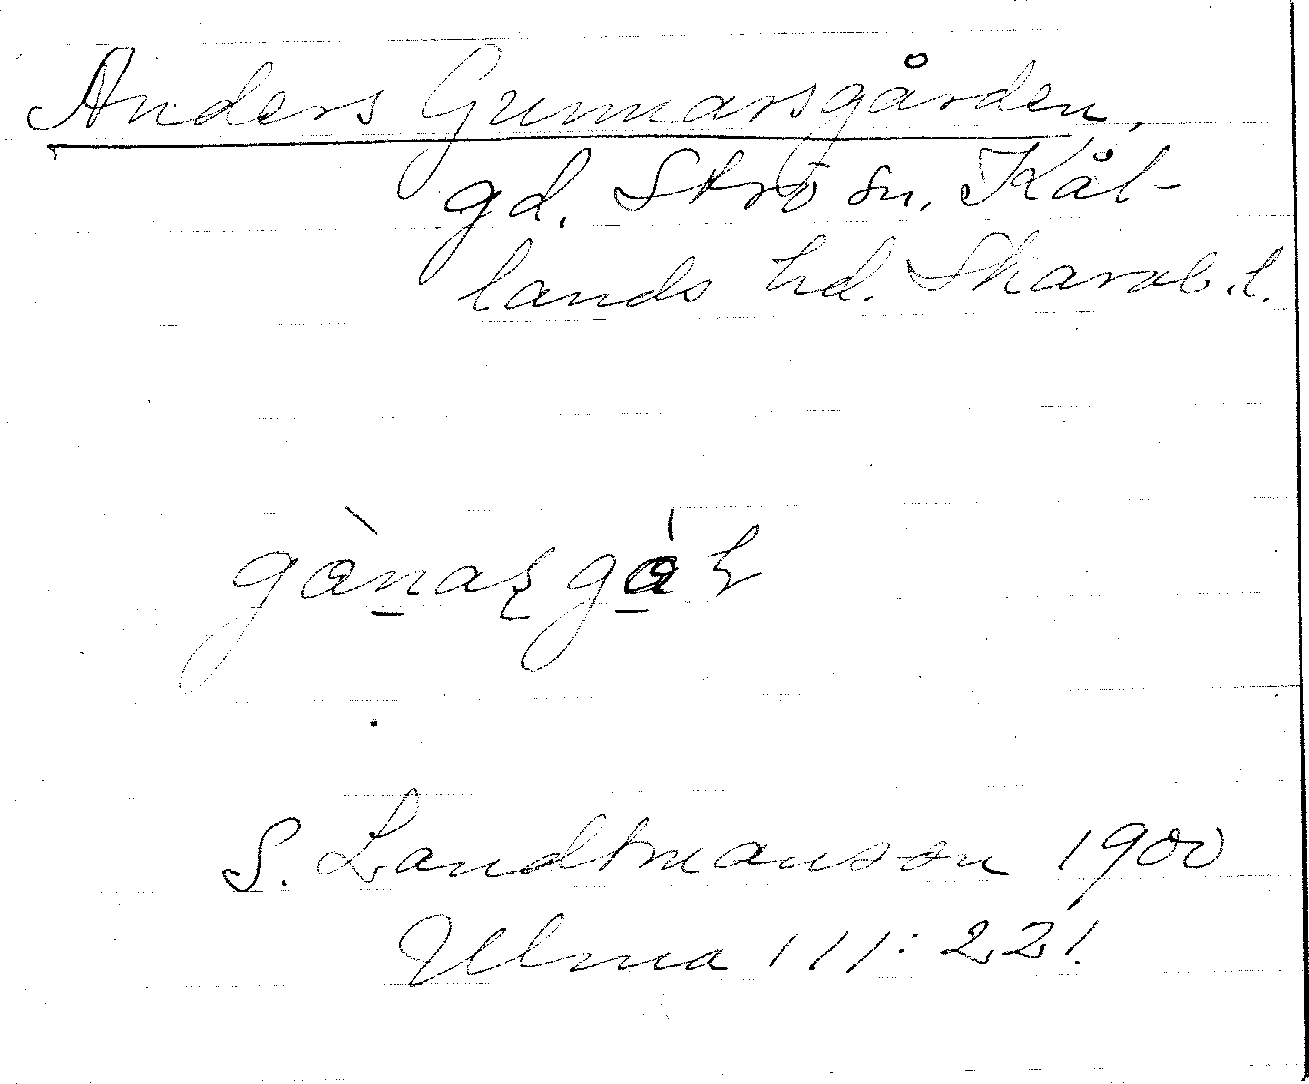 Anders Gunnarsgården,
gd. Strö sn, Kål-
lands hd. Skarab. l.
S. Landtmanson 1900
Ulma 111:221.